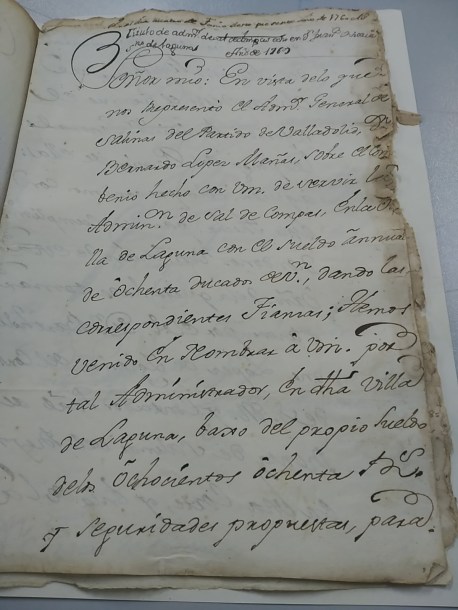 Titulo de adm.or de
Laguna
Año de 1760
Señor mio: En vista de lo que
nos represento el Adm.or General de
Salinas del Partido de Valladolid, Dn
Bernardo Lopez Mañas, sobre el Com
benio hecho con Vm. de servir la
Admin.on de Sal de Compas, en la Vi
lla de Laguna con el Sueldo annual
de ôchenta ducados de V.n, dando las
correspondientes Fianzas; Hemos
venido en Nombrar â Vm. por
tal Administrador, en dha Villa
de Laguna, baxo del propio sueldo
de los ôchocientos ôchenta r.s
y seguridades propuestas, para